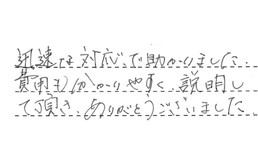 迅速な対応で助かりました.
費用も分かりやすく説明し
て頂き、ありがとうございました